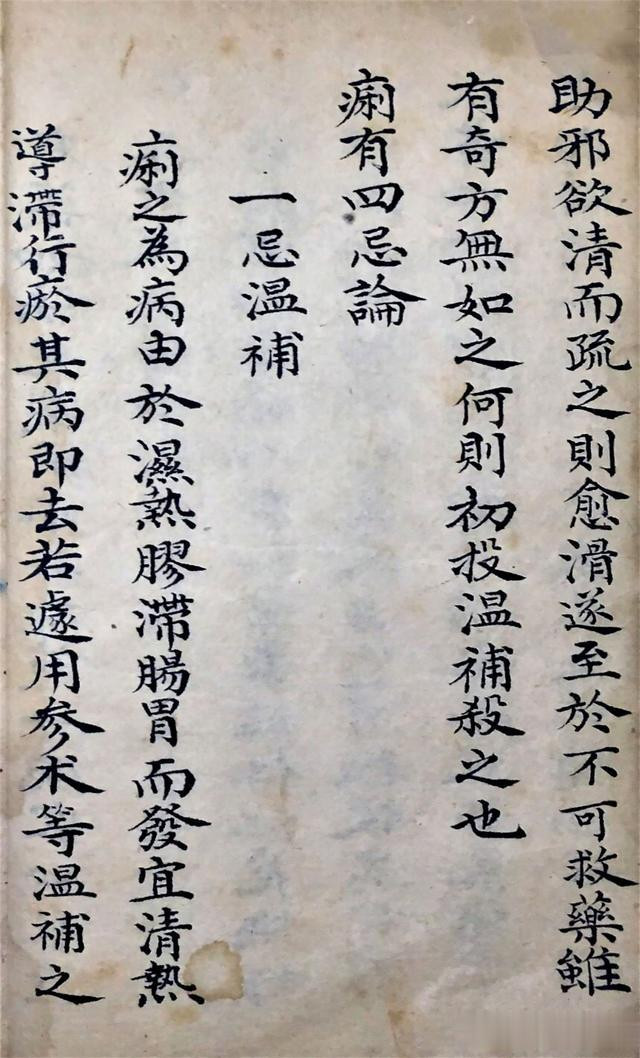 助邪欲清而疏之則愈滑遂至於不可救藥雖
有奇方無如之何則初投温補殺之也
痢有四忌論
一忌温補
痢之為病由於濕熱膠滯腸胃而發宜清熱
導滯行瘀其病即去若遽用参朮等温補之